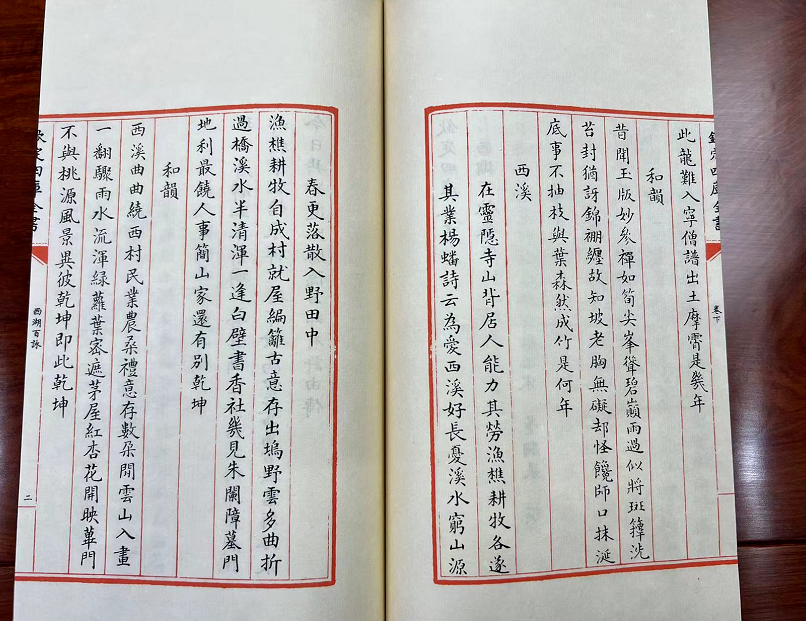 欽定四庫全書
卷下
此龍難入寧僧譜出土摩霄是幾年
和韻
昔聞玉版妙參禪如筍尖峯聳碧巔雨過似將斑籜洗
苔封猶訝錦襴纏故知坡老胸無礙却怪饞師口抹涎
底事不抽枝與葉森然成竹是何年
西溪
在靈隱寺山背居人能力其勞漁樵耕牧各遂
其業楊蟠詩云為愛西溪好長憂溪水窮山源
春更落散入野田中
漁樵耕牧自成村就屋編籬古意存出塢野雲多曲折
過橋溪水半清渾一逢白壁書香社幾見朱闌障墓門
地利最饒人事簡山家還有別乾坤
和韻
西溪曲曲繞西村民業農桑禮意存數朶閒雲山入畫
一翻驟雨水流渾綠蘿葉密遮茅屋紅杏花開映蓽門
不與桃源風景異彼乾坤即此乾坤
欽定四庫全書
西湖百詠
二